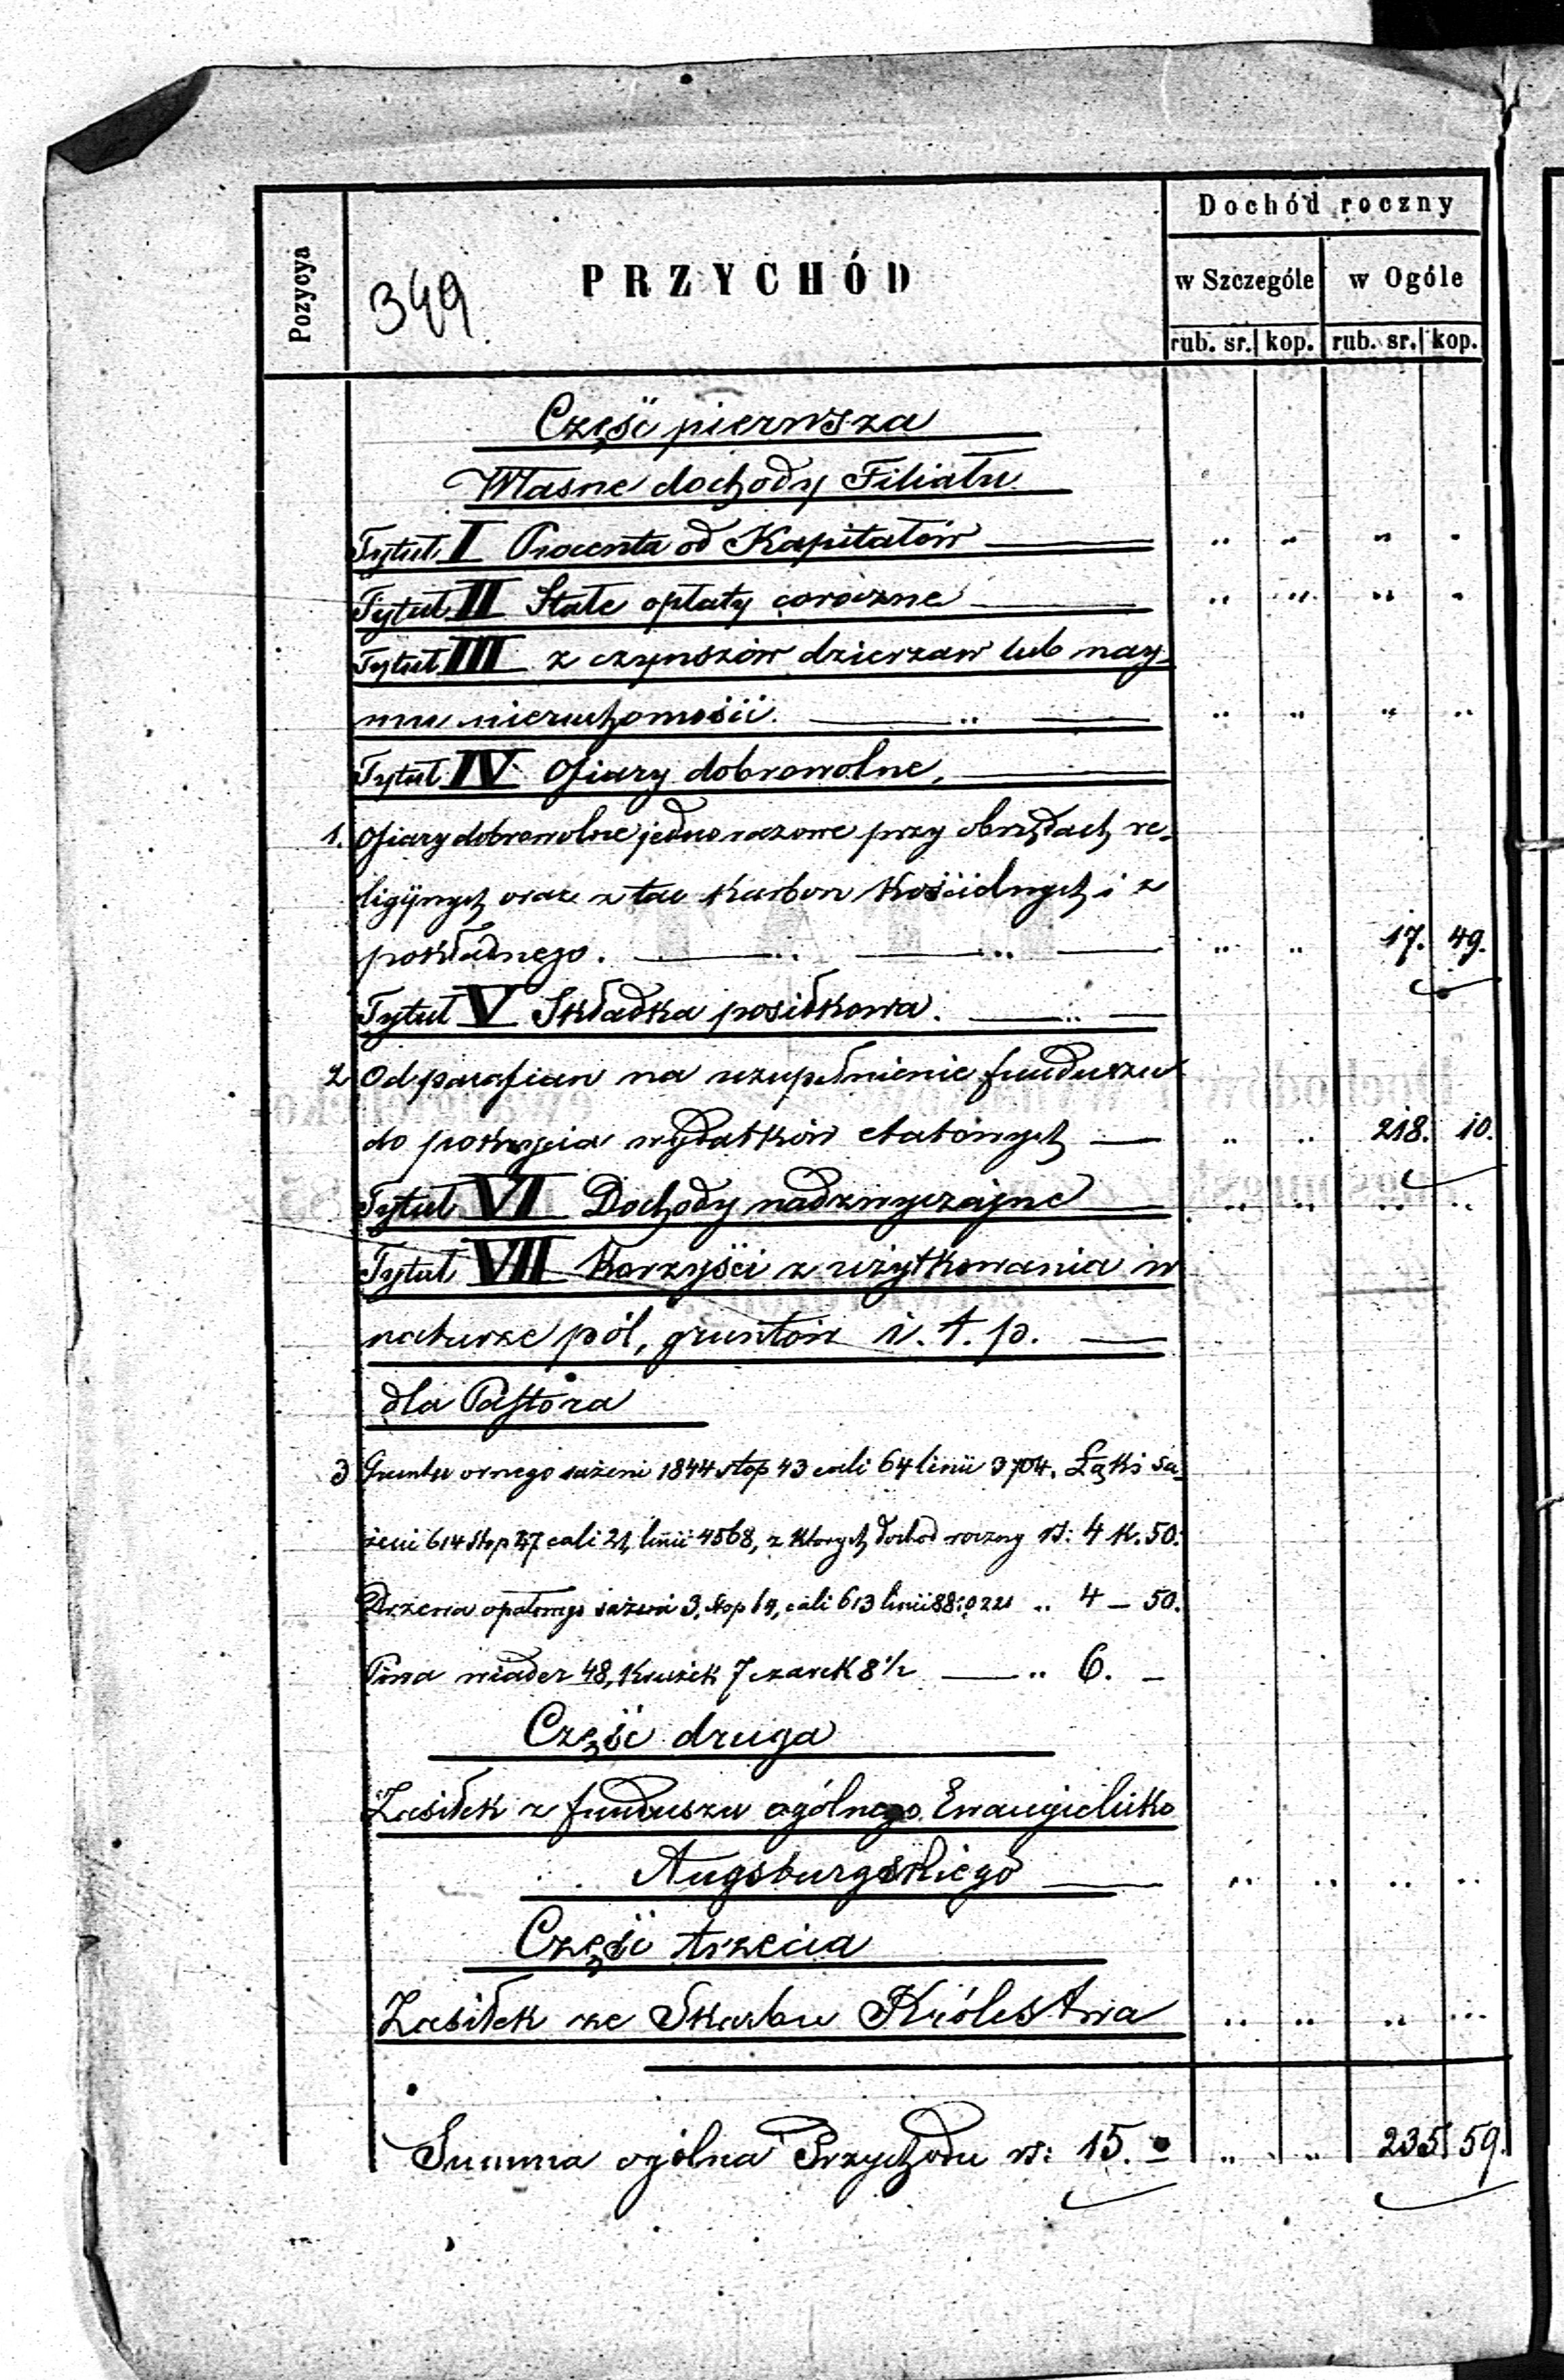 Dochód roczny
Pozycya
349
PRZYCHÓD
w Szczególe w Ogóle
rub. sr. kop. rub. sr. kop.
Część pierwsza
Własne dochody Filiału
Tytuł I Procenta od Kapitałów „ „ „ „
Tytuł II Stałe opłaty coroczne „ „ „ „
Tytuł III z czynszów dzierzaw lub nay-
mu nieruchomości. „ „ „ „ „
Tytuł IV Ofiary dobrowolne,
1. Ofiary dobrowolne jednorazowe przy obrzędach re-
ligijnych oraz z tac Karbon Kościelnych i z
pokładnego. „ „ „ „ 17. 49.
Tytuł V Składka posiłkowa. „
2 Od parafian na uzupełnienie funduszu
do pokrycia wydatków etatowych „ „ 218. 10.
Tytuł VI Dochody nadzwyczajne „ „ „ „
Tytuł VII Korzyści z użytkowania w
naturze pól, gruntów i. t. p.
dla Pastora
3 Gruntu ornego sażeni 1844 stop 43 cali 64 linii 3704. Łąki sa-
żeni 614 stop 47 cali 21, linii 4568, z których dochód roczny rs: 4 k. 50.
Drzewa opałowego sażeni 3, stop 19, cali 613 linii 88 „ 4 — 50.
Piwa wiader 48, Krużek 7 czarek 8 1/2 „ 6. —
Część druga
Zasiłek z funduszu ogólnego Ewangielicko
Augsburgskiego „ „ „ „
Część trzecia
Zasiłek ze Skarbu Królestwa „ „ „ „
Summa ogólna Przychodu rs: 15. — „ „ 235 59.